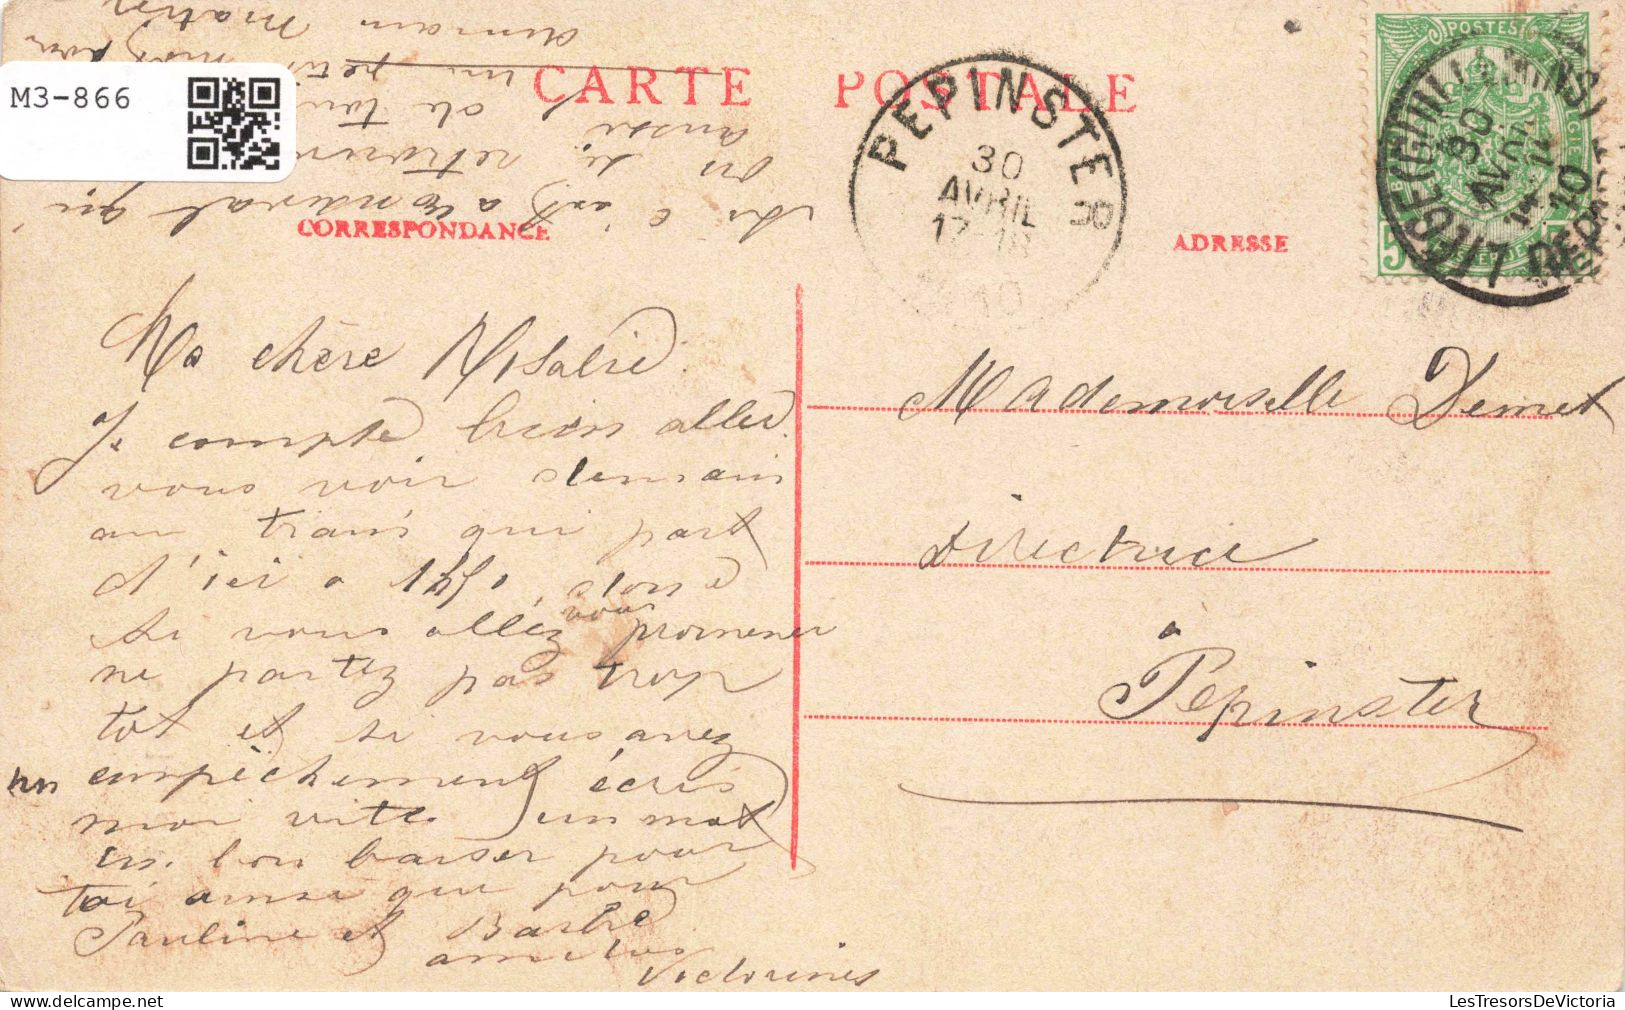 M3-866
CARTE POSTALE
CORRESPONDANCE
ADRESSE
PEPINSTER
30
AVRIL
17-18
10
POSTES
LIEGE (GUILLEMINS)
30
AVRIL
10
DEPART
5
Ma chère Rosalie
Je compte bien aller
vous voir demain
au train qui part
d'ici a
si vous allez vous promener
ne partez pas trop
tot et si vous avez
un empêchement écris
moi vite un mot
un bon baiser pour
toi ainsi que pour
Pauline et
amitiés
Victorines
aussi
de toi
un petit mot
demain matin
Mademoiselle Demet
Directrice
à
Pepinster
LesTresorsDeVictoria